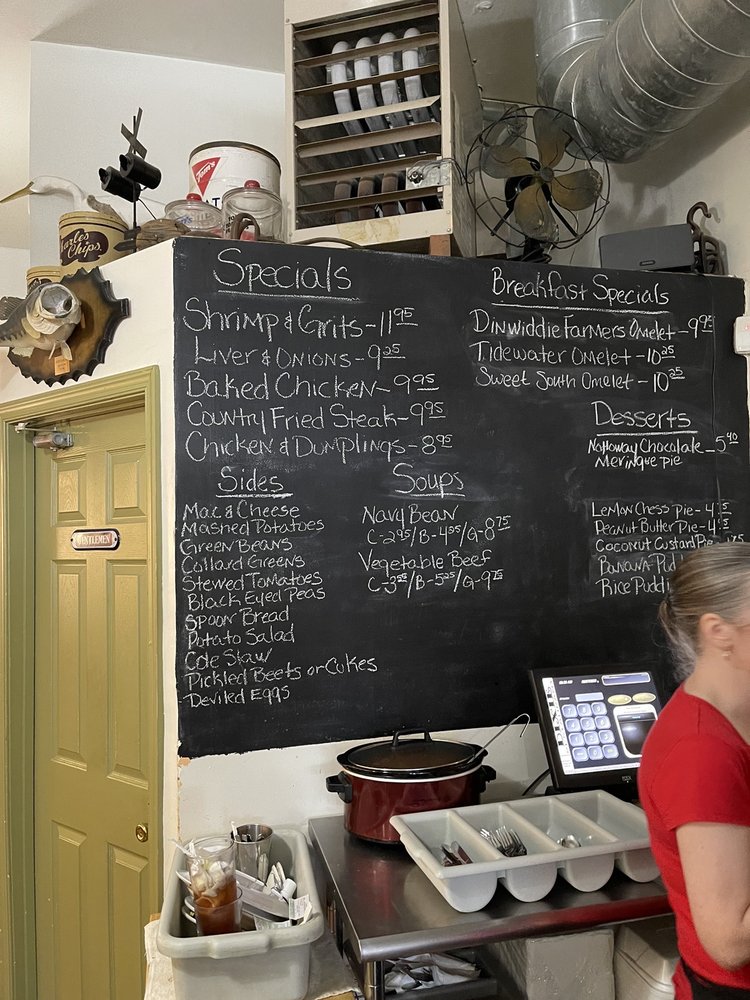 Tom's
Charles
Chips.
GENTLEMEN
Specials
Shrimp & Grits - 11 95
Liver & Onions - 9 25
Baked Chicken - 9 95
Country Fried Steak - 9 95
Chicken & Dumplings - 8 95
Sides
Mac & Cheese
Mashed Potatoes
Green Beans
Collard Greens
Stewed Tomatoes
Black Eyed Peas
Spoon Bread
Potato Salad
Cole Slaw
Pickled Beets or Cukes
Deviled Eggs
Soups
Navy Bean
C - 2 95 / B - 4 95 / G - 8 75
Vegetable Beef
C - 3 / B - 5 25 / G - 9 75
Breakfast Specials
Dinwiddie Farmers Omelet - 9
Tidewater Omelet - 10 25
Sweet South Omelet - 10 25
Desserts
Nottoway Chocolate - 5 40
Meringue Pie
Lemon Chess Pie - 4
Peanut Butter Pie - 4
Coconut Custard Pie
Banana Pudd
Rice Puddi